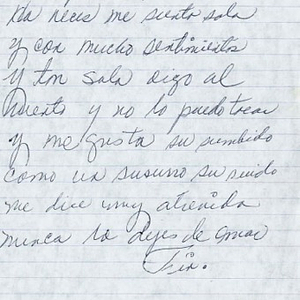 Ha veces me siento sola
y con mucho sentimientos
y tan sola oigo al
viento y no lo puedo tocar
y me gusta su sumbido
como un susurro su ruido
me dice muy atrevida
nunca lo dejes de amar
Fin.